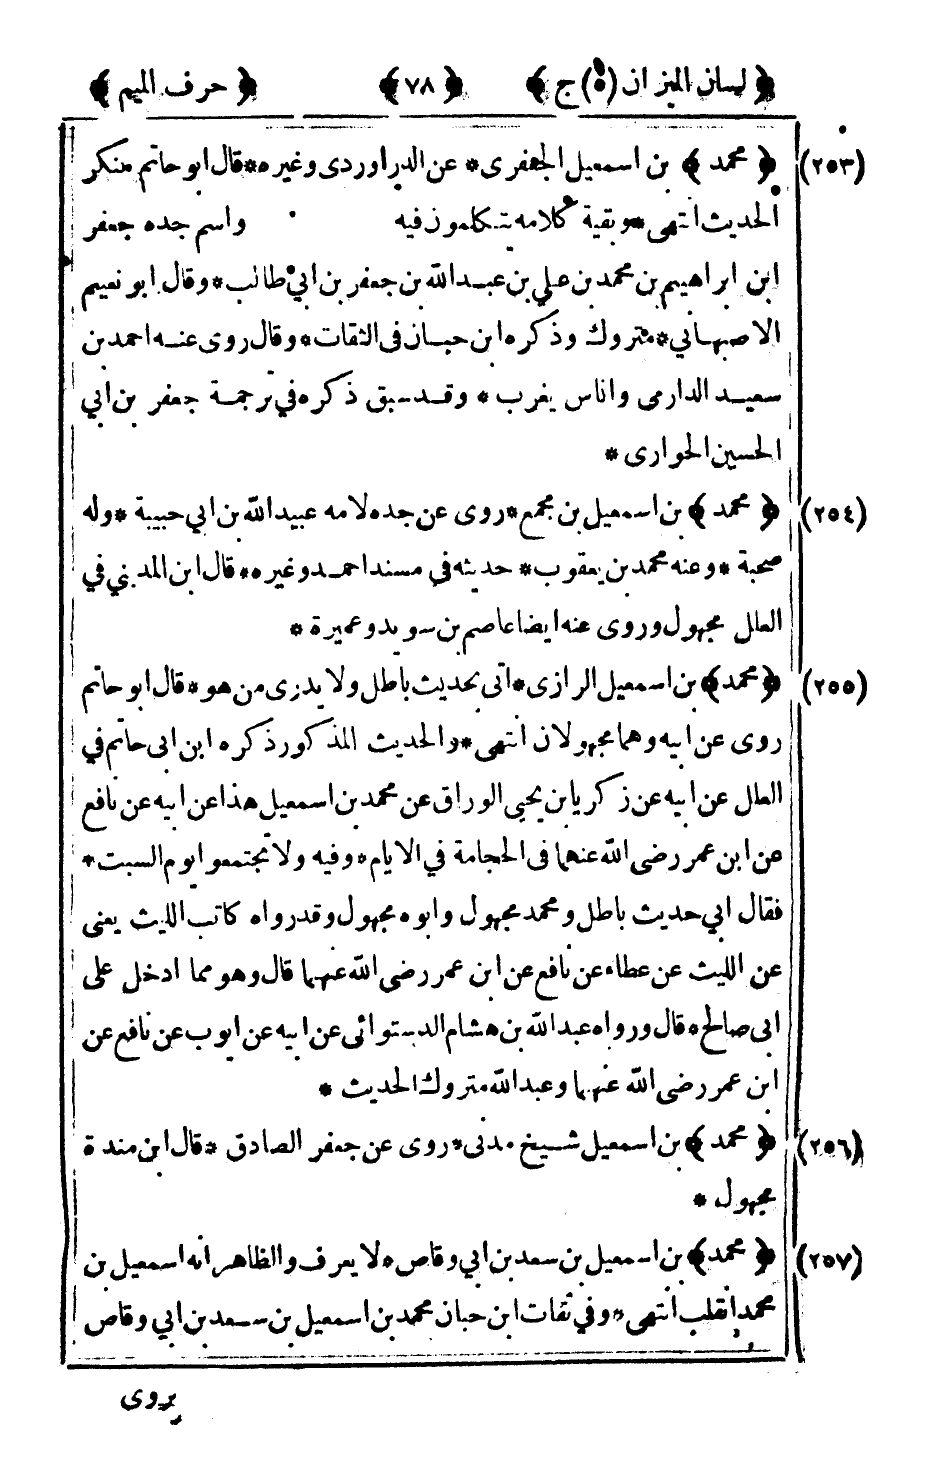 ﴿ لسان الميزان (٥) ج ﴾ ﴿ ٧٨ ﴾ ﴿ حرف الميم ﴾
(٢٥٣) ﴿ محمد ﴾ بن اسمعيل الجعفرى * عن الدراوردى وغيره * قال ابو حاتم منكر
الحديث انتهى * وبقية كلامه يتكلمون فيه واسم جده جعفر
ابن ابراهيم بن محمد بن علي بن عبد الله بن جعفر بن ابي طالب * وقال ابو نعيم
الاصبهاني * متروك وذكره ابن حبان فى الثقات * وقال روى عنه احمد بن
سعيد الدارمى واناس يغرب * وقد سبق ذكره في ترجمة جعفر بن ابي
الحسين الحوارى *
(٢٥٤) ﴿ محمد ﴾ بن اسمعيل بن مجمع * روى عن جده لامه عبيد الله بن ابي حبيبة * وله
صحبة * وعنه محمد بن يعقوب * حديثه في مسند احمد وغيره * قال ابن المديني في
العلل مجهول وروى عنه ايضا عاصم بن سويد وعميرة *
(٢٥٥) ﴿ محمد ﴾ بن اسمعيل الرازى * اتى بحديث باطل ولا يدرى من هو * قال ابو حاتم
روى عن ابيه وهما مجهولان انتهى * والحديث المذكور ذكره ابن ابى حاتم في
العلل عن ابيه عن زكريا بن يحيى الوراق عن محمد بن اسمعيل هذا عن ابيه عن نافع
عن ابن عمر رضى الله عنهما فى الحجامة في الايام * وفيه ولا تجتمعوا يوم السبت *
فقال ابي حديث باطل ومحمد مجهول وابوه مجهول وقد رواه كاتب الليث يعنى
عن الليث عن عطاء عن نافع عن ابن عمر رضى الله عنهما قال وهو مما ادخل على
ابى صالح * قال ورواه عبد الله بن هشام الدستوائى عن ابيه عن ايوب عن نافع عن
ابن عمر رضى الله عنهما وعبد الله متروك الحديث *
(٢٥٦) ﴿ محمد ﴾ بن اسمعيل شيخ مدنى * روى عن جعفر الصادق * قال ابن مندة
مجهول *
(٢٥٧) ﴿ محمد ﴾ بن اسمعيل بن سعد بن ابي وقاص * لا يعرف والظاهر انه اسمعيل بن
محمد انقلب انتهى * وفي ثقات ابن حبان محمد بن اسمعيل بن سعد بن ابي وقاص
يروى